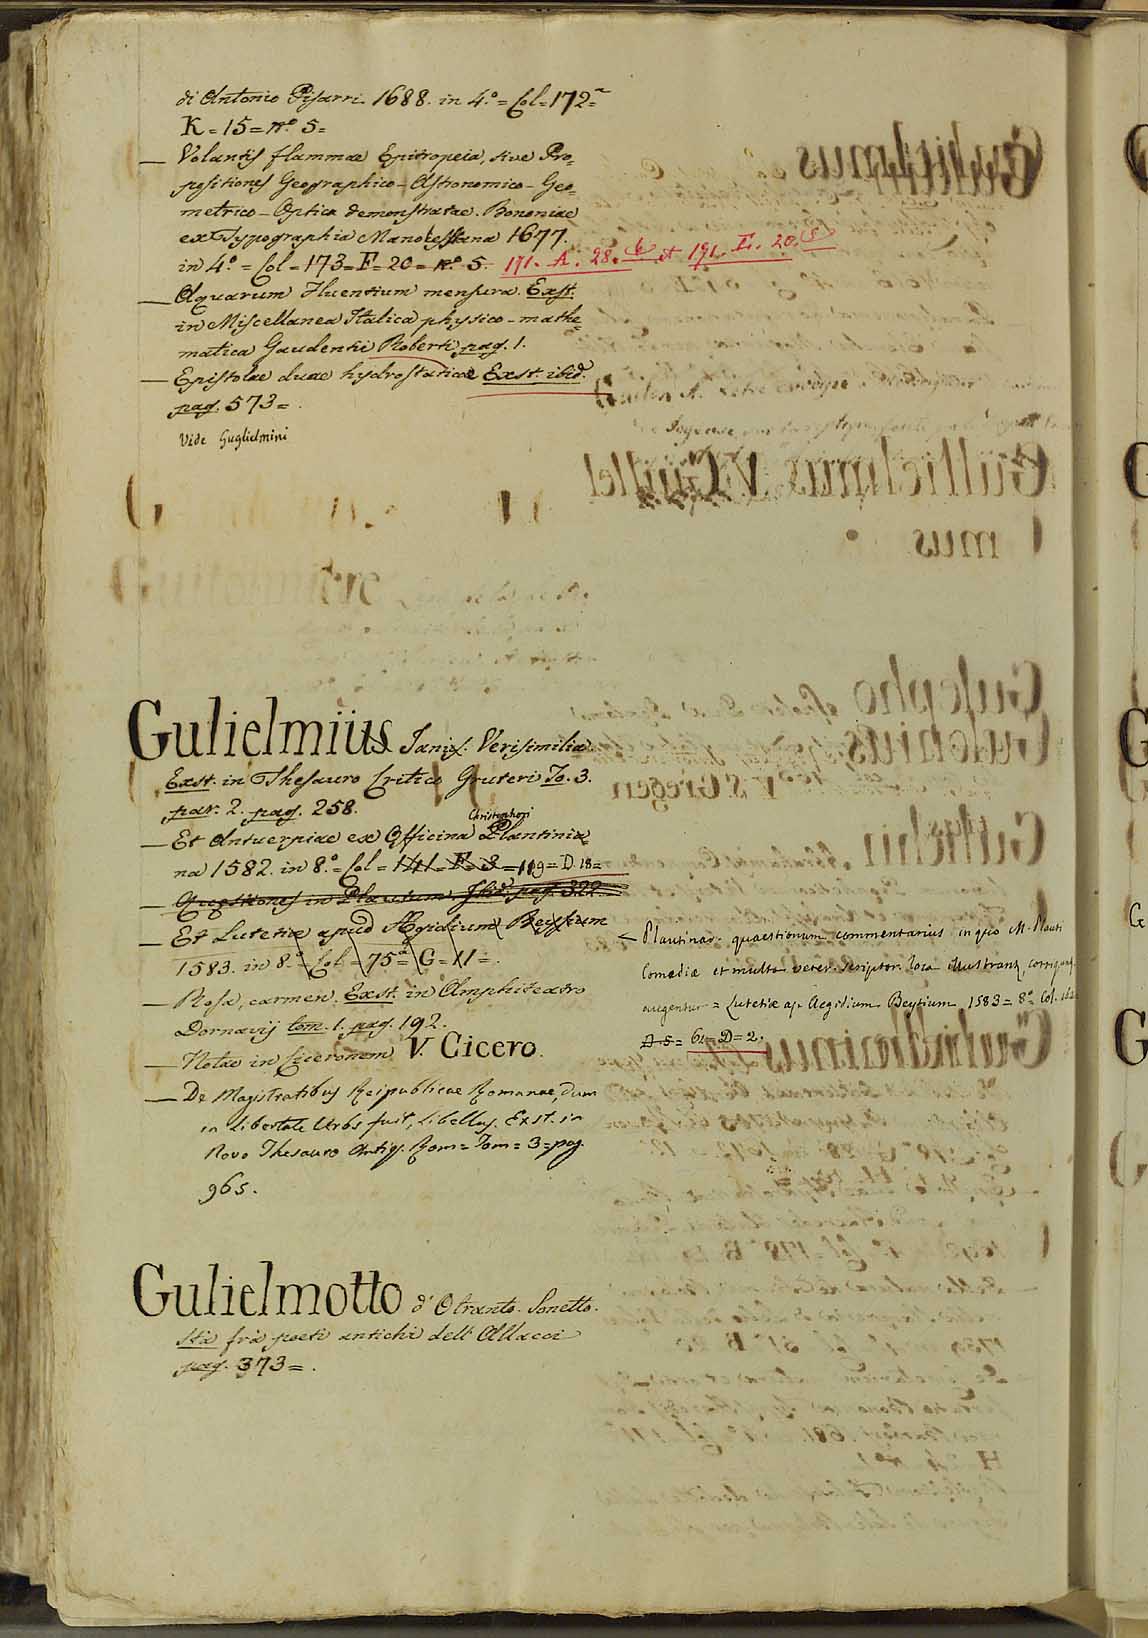 di Antonio Pisarri. 1688. in 4.º = Col = 172=
K = 15 = nº 5=
— Volantis flammae Epitropeia, sive Pro=
positiones Geographico-Astronomico-Geo=
metrico-Optica demonstratae. Bononiae
ex Typographia Manolessiana 1677.
in 4.º = Col = 173 = F = 20 = nº 5. 171. A. 28. 6 et 191. E. 20. 5
— Aquarum Fluentium mensura. Exst.
in Miscellanea Italica physico-mathe=
matica Gaudentii Roberti pag. 1.
— Epistolae duae hydrostaticae Exst. ibid.
pag. 573 = .
Vide Guglielmini
Gulielmius Jani. Verisimilia
Exst. in Thesauro Critico Gruteri To. 3.
par. 2. pag. 258.
Christophori
— Et Antuerpiae ex Officina Plantinia
na 1582. in 8.º = Col = 141 = F = 3 = 119 = D. 18 =
— Quaestiones in Plautum Ibid. pag. 322
— Et Lutetiae apud Ægidium Beysium
1583. in 8.º = Col = 75 = G = 11 = .
← Plautinar. quaestionum commentarius in quo M. Plauti
Comediae et multa veter. scriptor. loca illustrant, corrigunt
augentur = Lutetiae ap. Aegidium Beysium 1583 = 8.º Col.
D. 5 = 61 = D = 2.
— Rosa, carmen. Exst. in Amphiteatro
Dornavij tom. 1. pag. 192.
— Notae in Ciceronem V. Cicero.
— De Magistratibus Reipublicae Romanae, dum
in libertate Urbs fuit, Libellus. Exst. in
Novo Thesauro Antiq. Rom = Tom = 3 = pag.
965.
Gulielmotto d'Otranto. Sonetto.
Sta frà poeti antichi dell'Allacci
pag. 373 = .